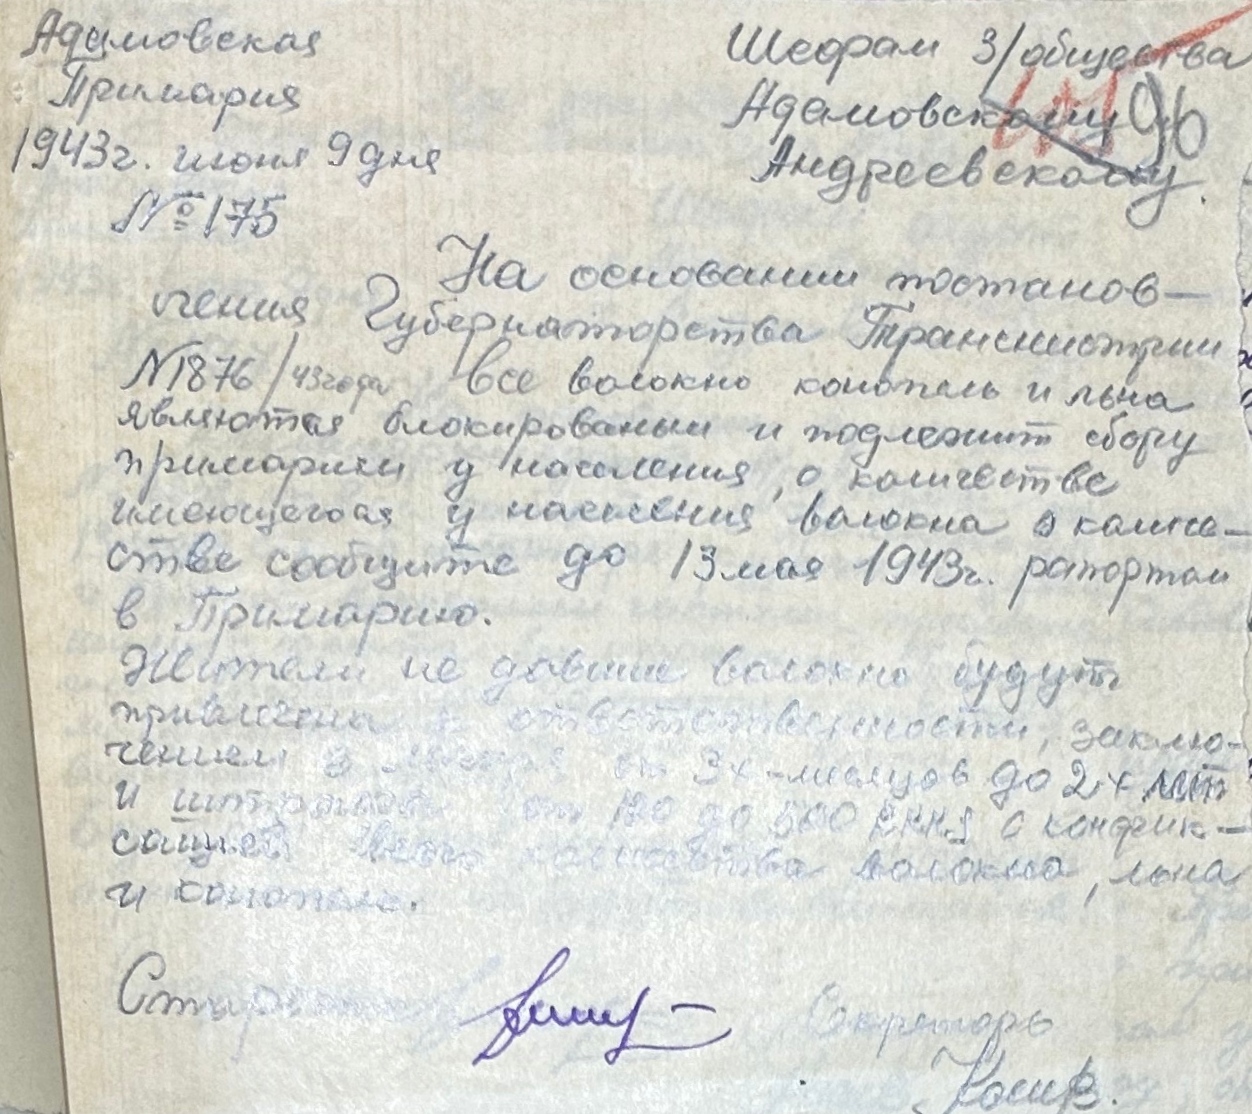 Адамовская
Примария
1943г. июня 9 дня
№ 175
Шефам з/общества
Адамовскому 96
Андреевскому.
На основании постанов-
ления Губернаторства Транснистрии
N1876/43 года все волокно конопель и льна
являются блокированым и подлежит сбору
примарией у населения, о количестве
имеющегося у населения волокна о количе-
стве сообщите до 13 мая 1943г. рапортом
в Примарию.
Жители не давшие волокно будут
привлечены к ответственности, заклю-
чением в от 3х-месяцов до 2х лет
и штрафом от 120 до 600 с конфис-
сацией всего количества волокна, льна
и конопель.
Староста
Секретарь